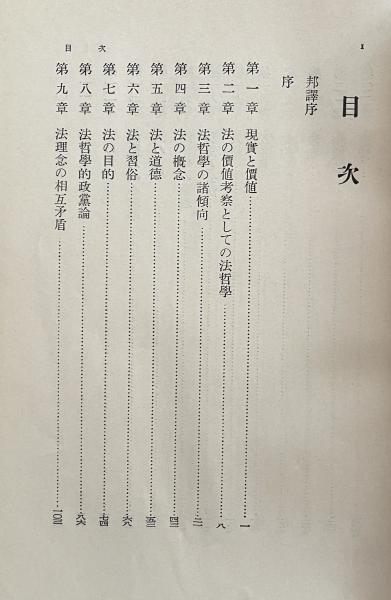 1
目次
目次
邦譯序
序
第一章 現實と價値……一
第二章 法の價値考察としての法哲學……八
第三章 法哲學の諸傾向……
第四章 法の概念……
第五章 法と道德……
第六章 法と習俗……六八
第七章 法の目的……七四
第八章 法哲學的政黨論……八六
第九章 法理念の相互矛盾……